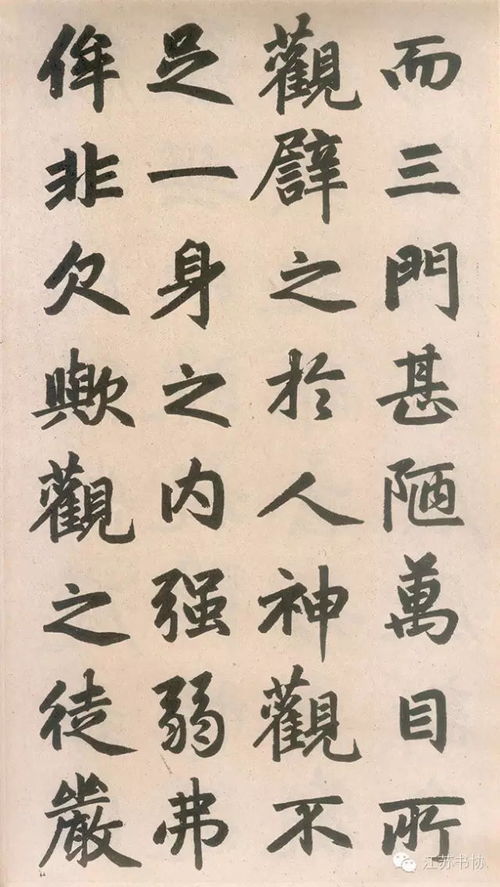 而三門甚陋萬目所
觀譬之於人神觀不
足一身之内强弱弗
侔非欠歟觀之徒嚴
江苏书协